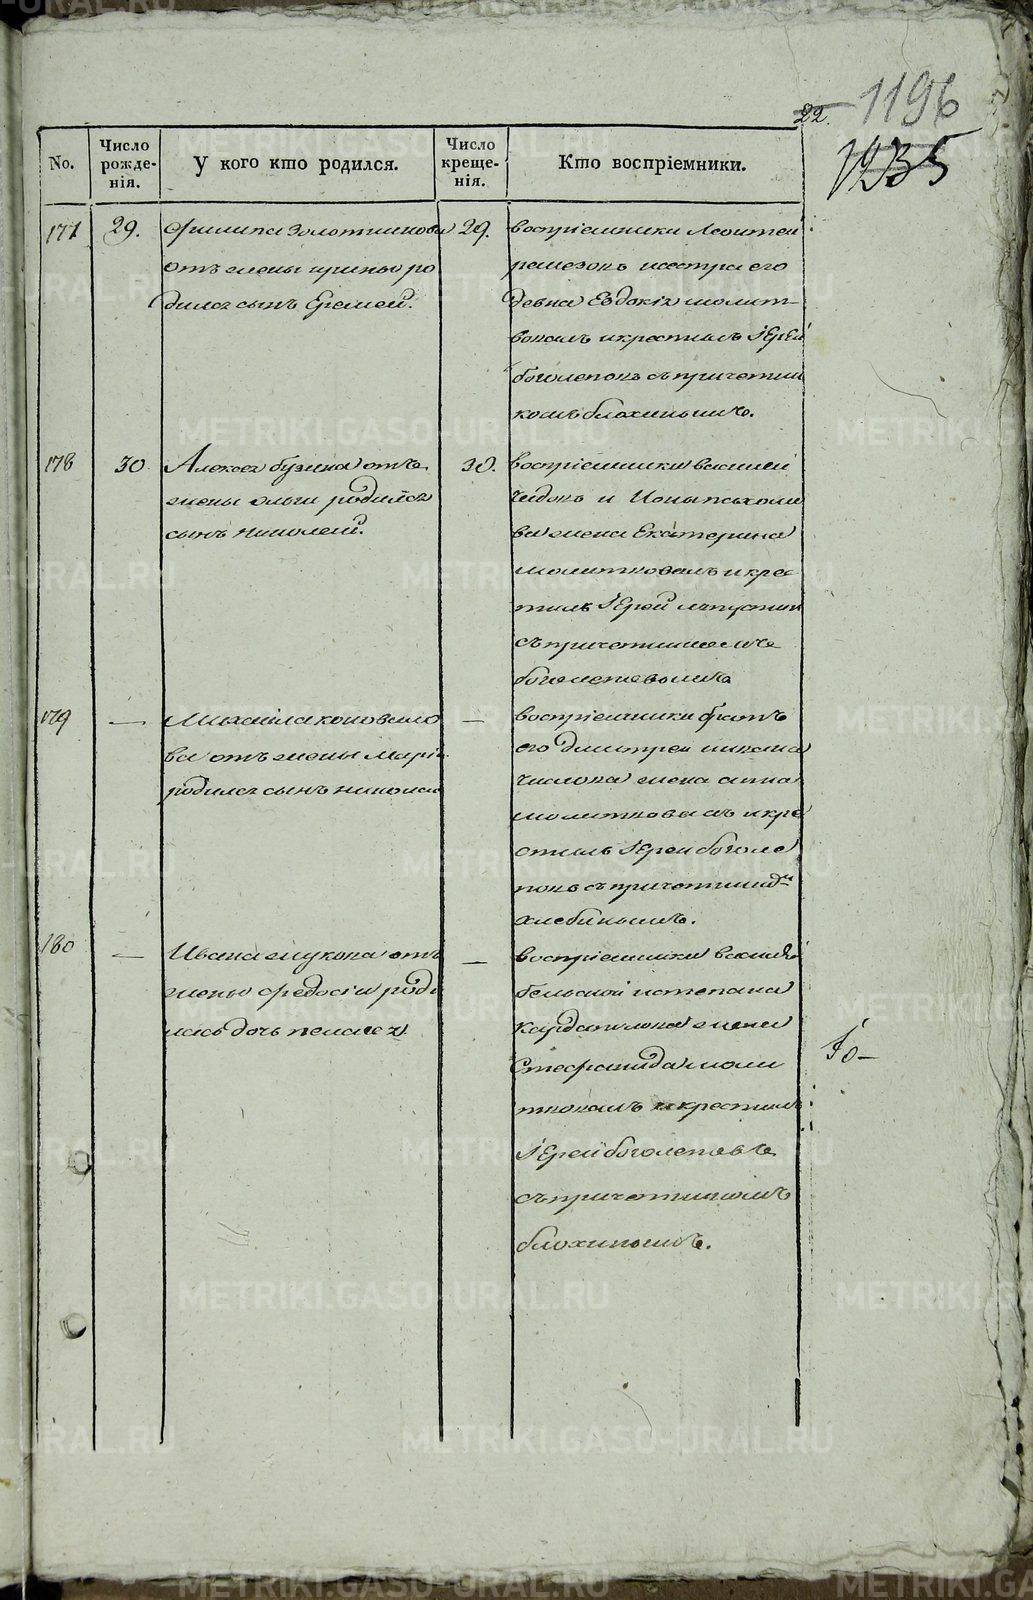 22.
1196
1235
No.
Число рожде-нія.
У кого кто родился.
Число креще-нія.
Кто воспріемники.
177
29.
Филипа Золотникова
отъ жены ирины ро
дился сынъ Еремей.
29.
воспріемники Леонтей
ремезовъ исестра его
девка Евдокія молит-
вовалъ икрестилъ Іерей
боголеповъ съпричетни
комъ блохинымъ.
178
30
Алексея бузина отъ
жены родился
сынъ николай.
30.
воспріемники василей
и
ва жена Екатерина
молитвовалъ икрес
тилъ Іерей
съпричетникомъ
боголеповымъ
179
—
Михаила коновало
ва отъ жены Маріи
родился сынъ николай
—
воспріемники братъ
его дмитрей
числова жена анна
молитвовалъ икре
стилъ Іерей боголе
повъ съ причетникомъ
хлебинымъ.
180
—
Ивана жукова отъ
жены Федосіи роди
лась дочь пелагея
—
воспріемники василей
бельской истепана
жена
Стефанида моли
твовалъ икрестилъ
Іерей боголеповъ
съпричетникомъ
блохинымъ.
METRIKI.GASO-URAL.RU